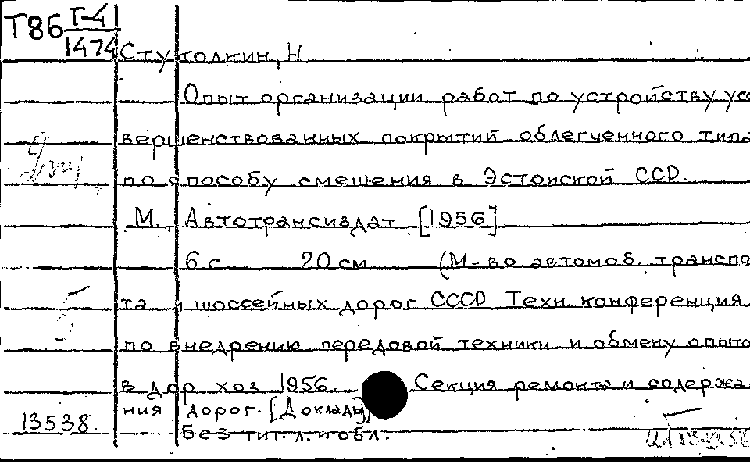 Т86 Т-4
1474
Стуколкин, Н.
Опыт организации работ по устройству ус
вершенствованных покрытий облегченного типа
по способу смешения в Эстонской ССР.
М. Автотрансиздат [1956]
6 с 20 см (М-во автомоб. транспо
та и шоссейных дорог СССР Техн конференция
по внедрению передовой техники и обмену опыто
в дор хоз 1956. Секция ремонта и содержа
ния дорог. [Доклады]
13538.
без тит. л. и обл.